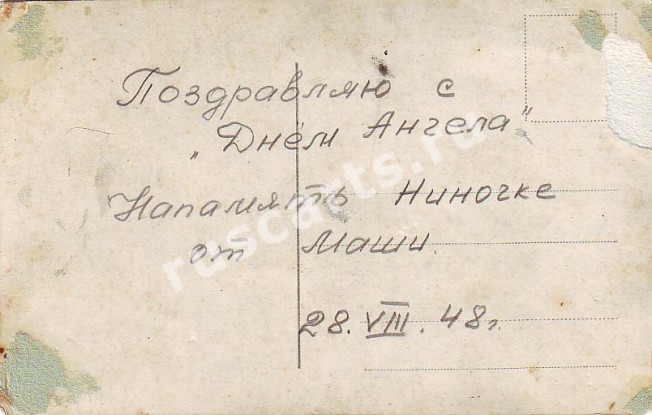 Поздравляю с
„Днём Ангела"
Напамять Ниночке
от Маши.
28. VIII. 48 г.
ruscarts.ru